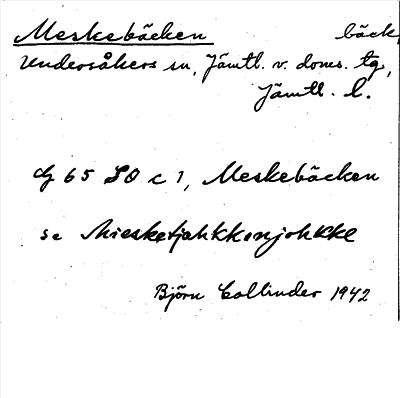 Meskebäcken bäck,
Undersåkers sn, Jämtl. v. doms. tg,
Jämtl. l.
Cf 65 SO c 1, Meskebäcken
se Mieskētjahkkanjohkke
Björn Collinder 1942